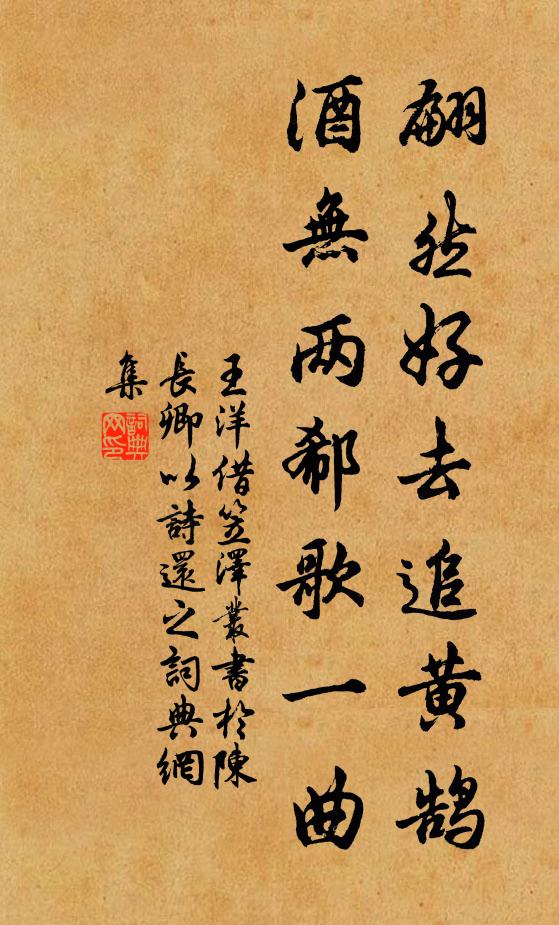 翩然好去追黄鹄
酒無两郗歌一曲
王洋借笠澤叢書於陳
長卿以詩還之詞典網
集
詞典
网印